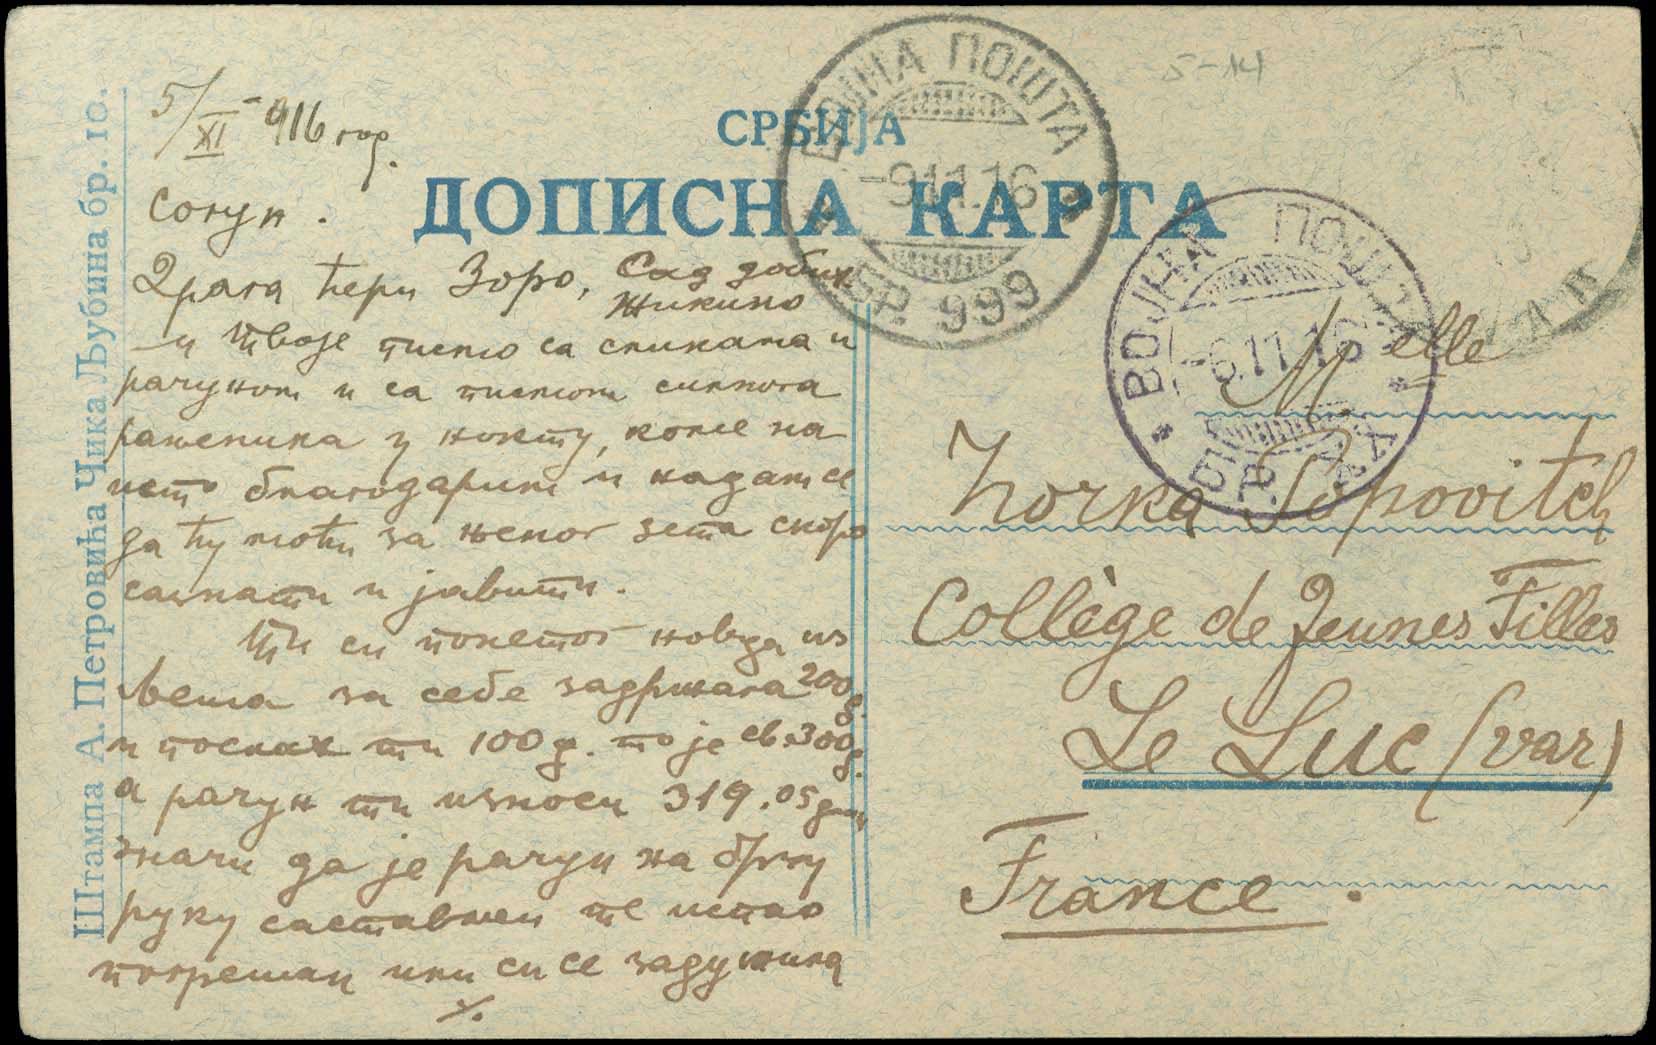 5/XI-916 год.
Солун.
СРБИЈА
ДОПИСНА КАРТА
ВОЈНА ПОШТА
-9.11.16
БР. 999
ВОЈНА ПОШТА
-6.11.16
5-14
Драга ћери Зоро, Сад добих
Жикино
и твоје писмо са сликама и
рачуном и са писмом
рањеника у
благодарим и надам се
да ћу моћи за њеног зета скоро
сазнати и јавити.
Ти си
за себе задржала 200 д.
и послах ти 100 д. то је св. 300 д.
а рачун ти износи 319.05 дин
значи да је рачун на брзу
руку састављен те испао
погрешан или си се задужила
./.
Штампа А. Петровића Чика Љубина бр. 10.
Melle
Zorka Popovitch
Collège de Jeunes Filles
Le Luc (var)
France.